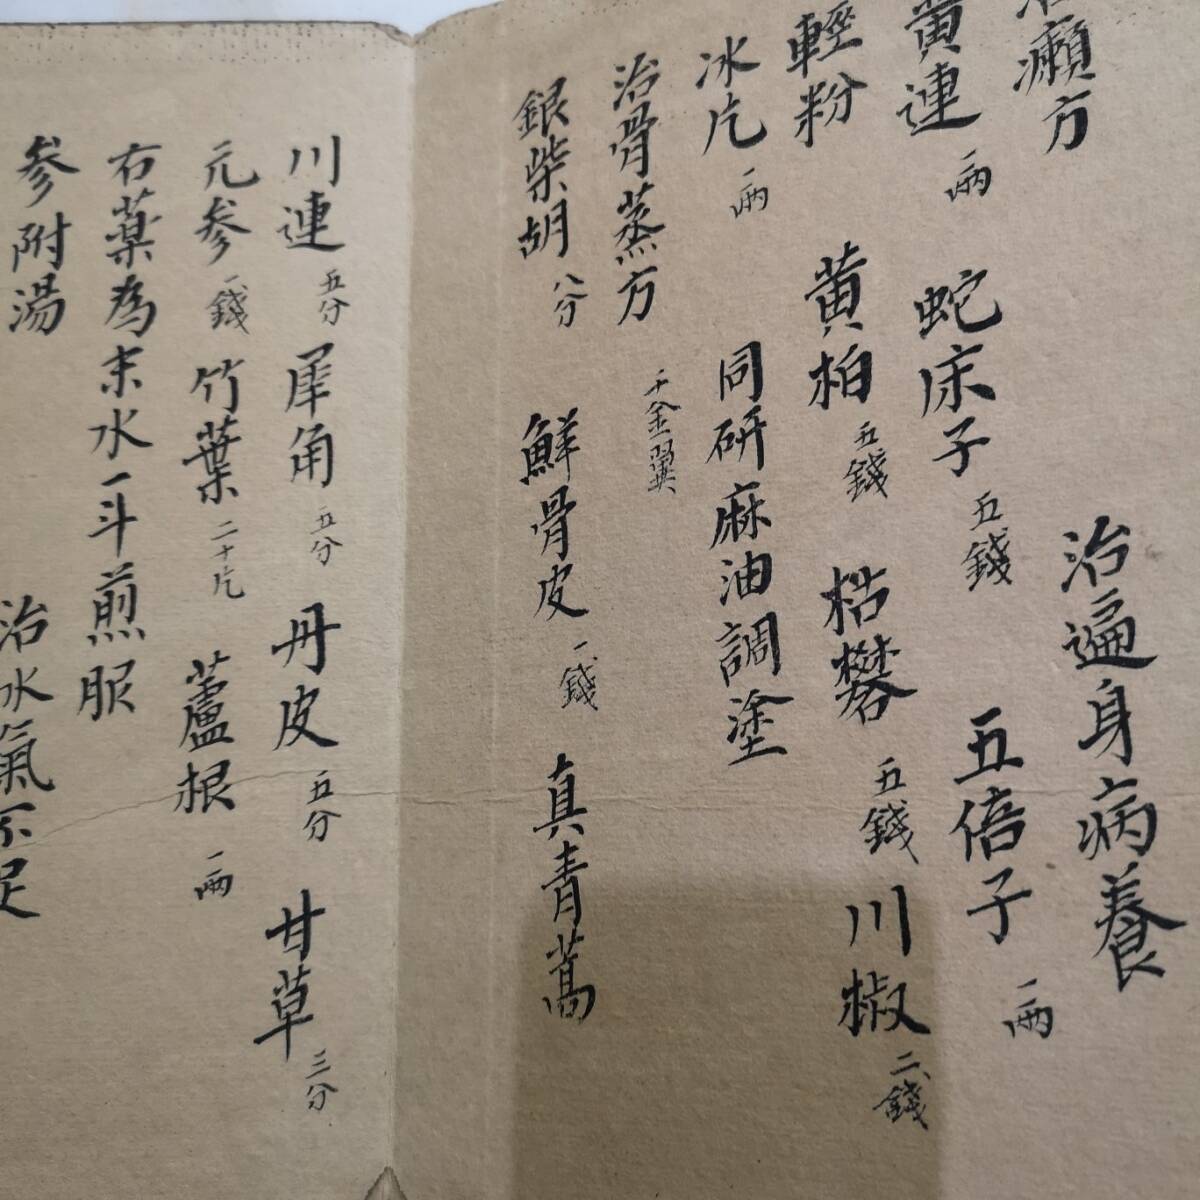 治癩方 治遍身病養
黄連 一兩 蛇床子 五錢 五倍子 一兩
輕粉 黄柏 五錢 枯礬 五錢 川椒 二錢
冰片 一兩 同研麻油調塗
治骨蒸方 千金翼
銀柴胡 八分 鮮骨皮 一錢 真青蒿
川連 五分 犀角 五分 丹皮 五分 甘草 三分
元参 一錢 竹葉 二十片 蘆根 一兩
右薬為末水一斗煎服
参附湯 治水氣不足